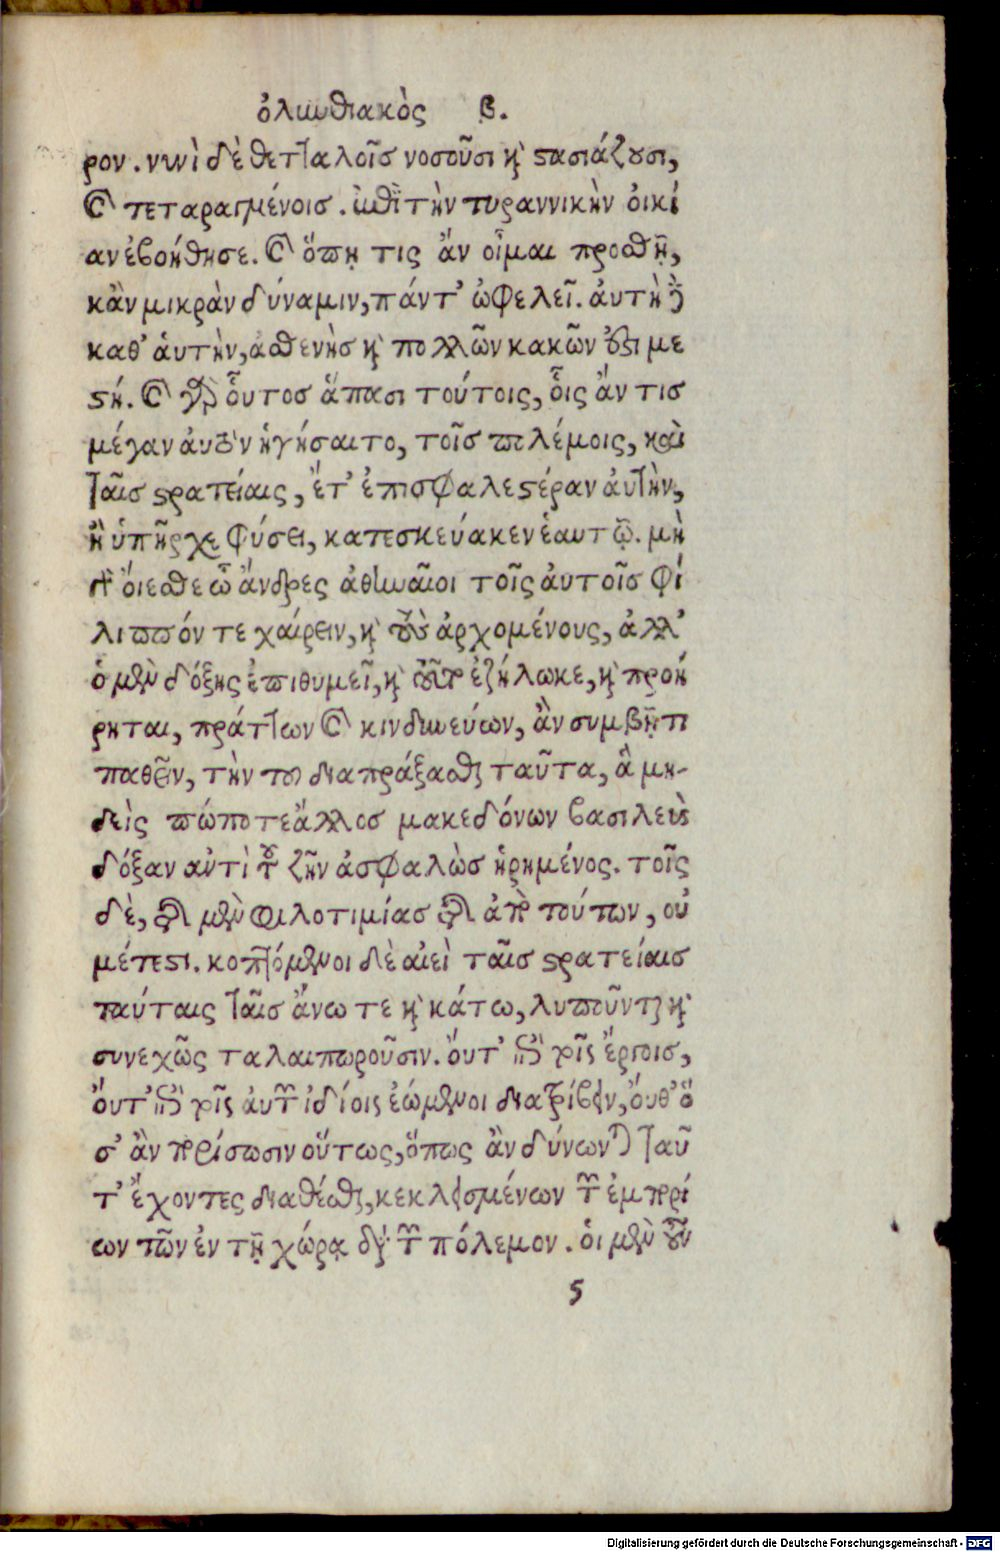 ὀλυνθιακὸς β.
ρον. νυνὶ δὲ θετταλοῖς νοσοῦσι καὶ στασιάζουσι,
καὶ τεταραγμένοις. ἐπὶ τὴν τυραννικὴν οἰκί
αν ἐβοήθησε. καὶ ὅπῃ τις ἄν οἶμαι προσθῇ,
κἂν μικρὰν δύναμιν, πάντ' ὠφελεῖ. ἀυτὴ δὲ
καθ' ἁυτὴν, ἀσθενὴς καὶ πολλῶν κακῶν ἐστι με
στή. καὶ γὰρ οὗτος ἅπασι τούτοις, οἷς ἄν τις
μέγαν ἀυτὸν ἡγήσαιτο, τοῖς πολέμοις, καὶ
ταῖς στρατείαις, ἔτ' ἐπισφαλεστέραν ἀυτὴν,
ἢ ὑπῆρχε φύσει, κατεσκεύακεν ἑαυτῷ. μὴ
γὰρ ὄιεσθε ὦ ἄνδρες ἀθηναῖοι τοῖς ἀυτοῖς φί
λιππόν τε χαίρειν, καὶ τοὺς ἀρχομένους, ἀλλ'
ὁ μὲν δόξης ἐπιθυμεῖ, καὶ τοῦτο ἐζήλωκε, καὶ προή
ρηται, πράττων καὶ κινδυνεύων, ἂν συμβῇ τι
παθεῖν, τὴν τοῦ διαπράξασθαι ταῦτα, ἃ μη-
δεὶς πώποτε ἄλλος μακεδόνων βασιλεὺς
δόξαν ἀντὶ τοῦ ζῆν ἀσφαλῶς ἡρημένος. τοῖς
δὲ, τῆς μὲν φιλοτιμίας τῆς ἀπὸ τούτων, οὐ
μέτεστι. κοπτόμενοι δὲ αἰεὶ ταῖς στρατείαις
ταύταις ταῖς ἄνω τε καὶ κάτω, λυποῦνται καὶ
συνεχῶς ταλαιπωροῦσιν. ὄυτ' ἐπὶ τοῖς ἔργοις,
ὄυτ' ἐπὶ τοῖς ἀυτῶν ἰδίοις ἐώμενοι διατρίβειν, ὄυθ' ὅ
σ' ἂν πορίσωσιν οὕτως, ὅπως ἂν δύνωνται ταῦ
τ' ἔχοντες διαθέσθαι, κεκλεισμένων τῶν ἐμπορί
ων τῶν ἐν τῇ χώρᾳ διὰ τὸν πόλεμον. ὁι μὲν οὖν
ς
Digitalisierung gefördert durch die Deutsche Forschungsgemeinschaft - DFG